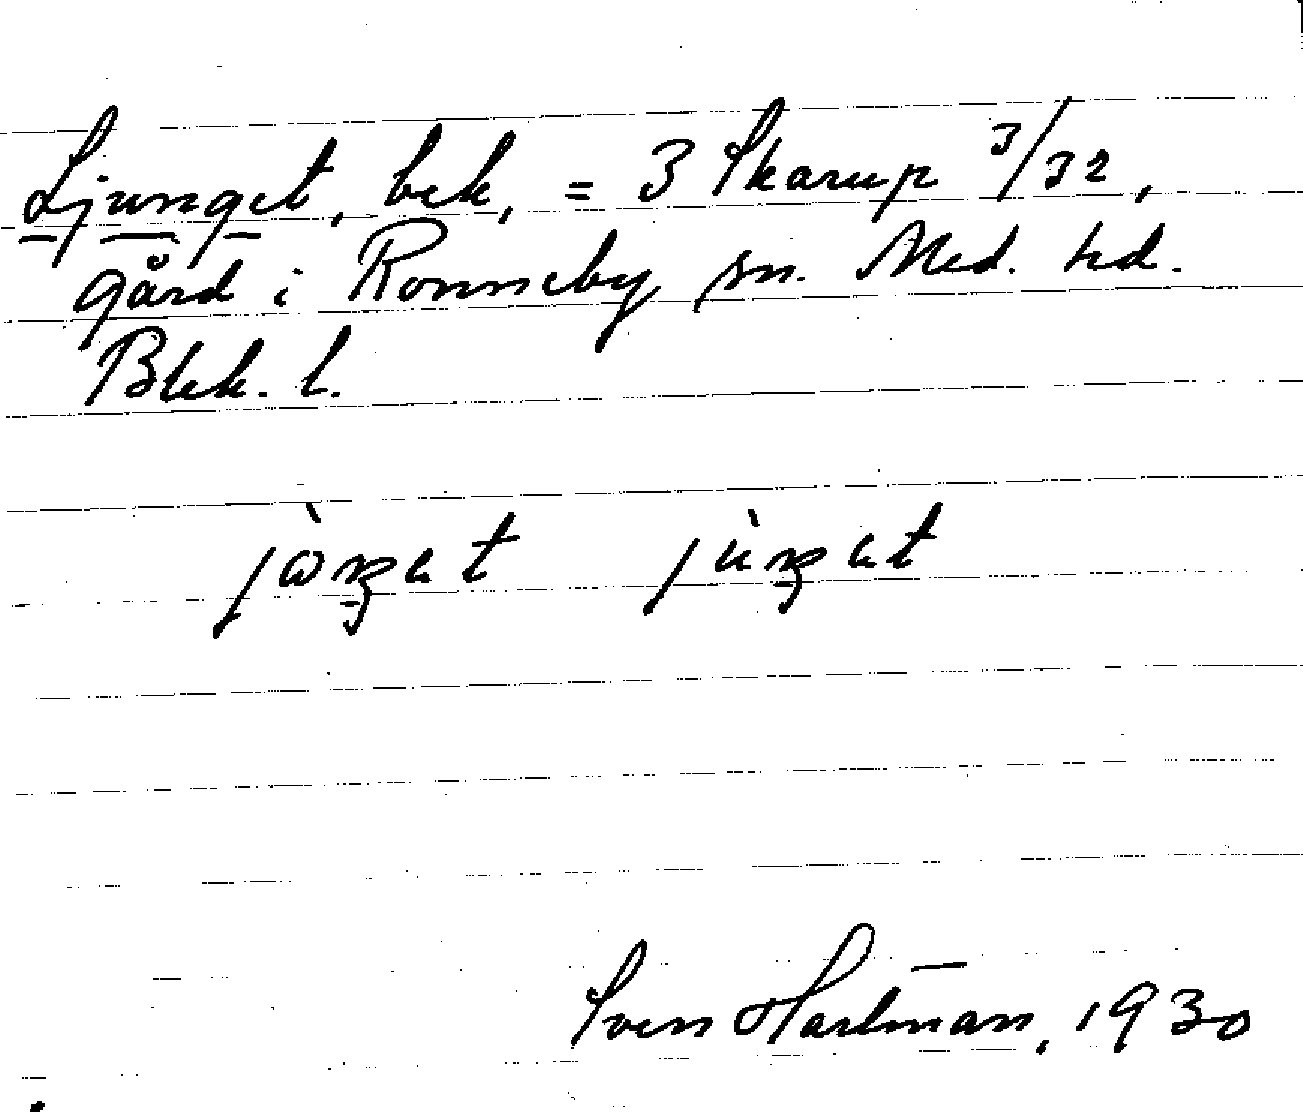 Ljunget, bek, = 3 Skarup 3/32,
gård i Ronneby sn. Med. hd.
Blek. l.
Sven Hartman, 1930